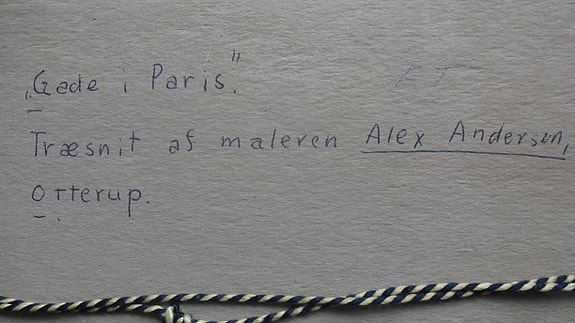 „Gade i Paris".
Træsnit af maleren Alex Andersen,
Otterup.